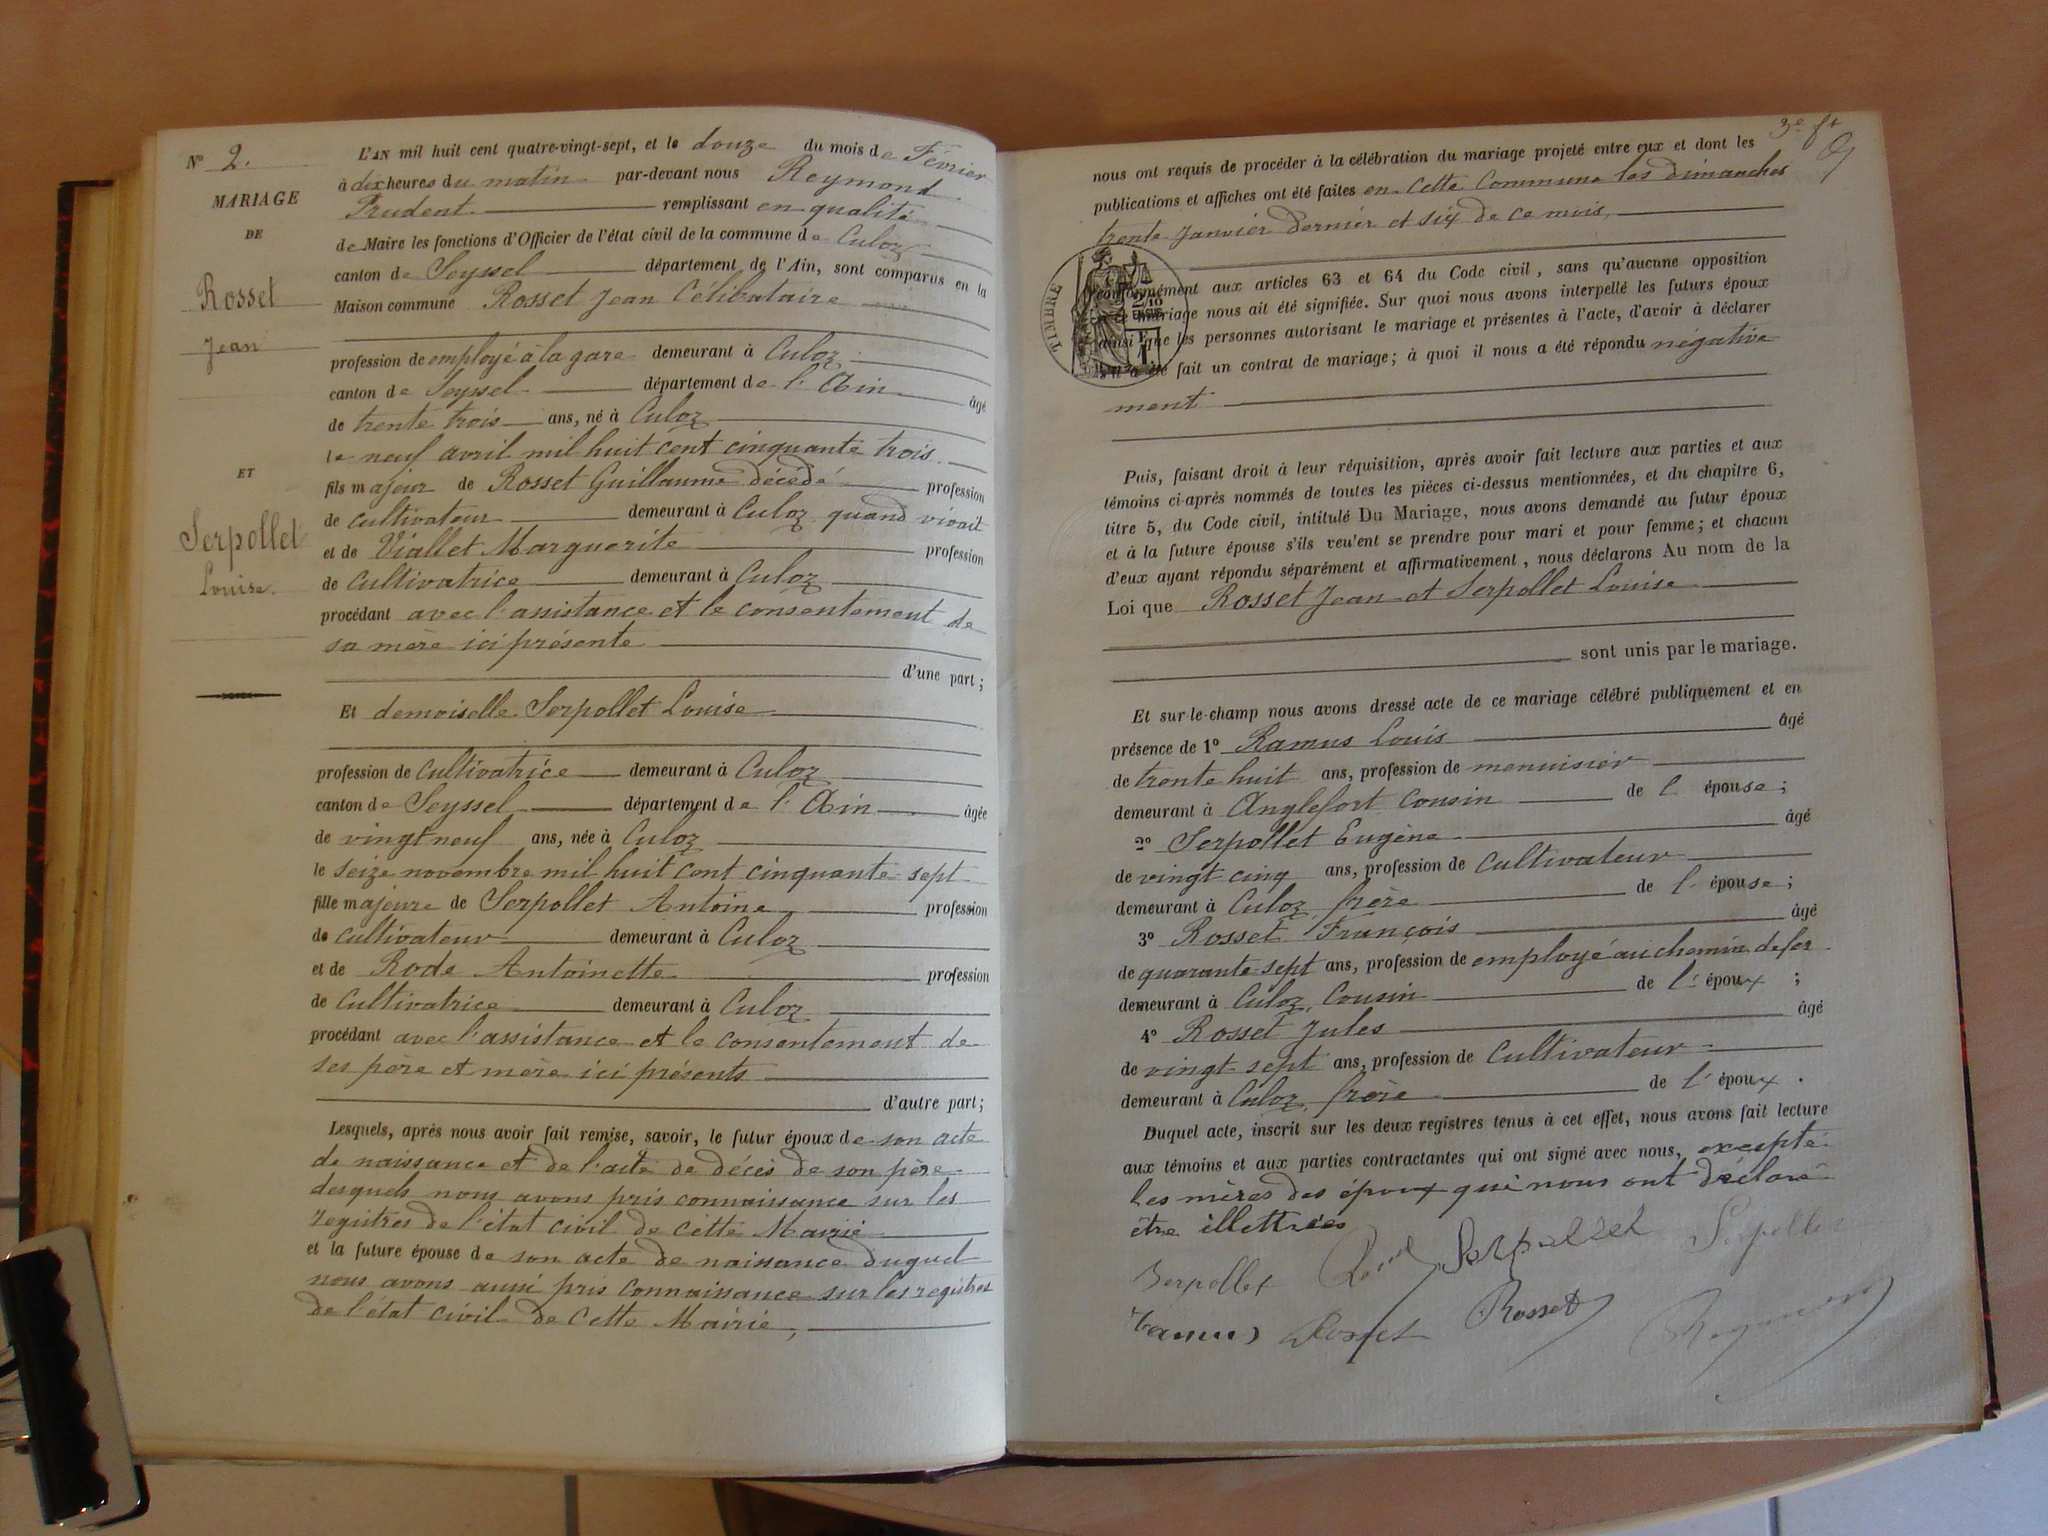 Nº 2.
MARIAGE
DE
Rosset
Jean
ET
Serpollet
Louise.
L'AN mil huit cent quatre-vingt-sept, et le douze du mois de Février
à dix heures du matin par-devant nous Reymond
Prudent remplissant en qualité
de Maire les fonctions d'Officier de l'état civil de la commune de Culoz
canton de Seyssel département de l'Ain, sont comparus en la
Maison commune Rosset Jean Célibataire
profession de employé à la gare demeurant à Culoz
canton de Seyssel département de l'Ain âgé
de trente trois ans, né à Culoz
le neuf avril mil huit cent cinquante trois
fils majeur de Rosset Guillaume décédé profession
de cultivateur demeurant à Culoz quand vivait
et de Viallet Marguerite profession
de cultivatrice demeurant à Culoz
procédant avec l'assistance et le consentement de
sa mère ici présente
d'une part;
Et demoiselle Serpollet Louise
profession de cultivatrice demeurant à Culoz
canton de Seyssel département de l'Ain âgée
de vingt neuf ans, née à Culoz
le seize novembre mil huit cent cinquante sept
fille majeure de Serpollet Antoine profession
de cultivateur demeurant à Culoz
et de Rode Antoinette profession
de cultivatrice demeurant à Culoz
procédant avec l'assistance et le consentement de
ses père et mère ici présents
d'autre part;
Lesquels, après nous avoir fait remise, savoir, le futur époux de son acte
de naissance et de l'acte de décès de son père
desquels nous avons pris connaissance sur les
registres de l'état civil de cette Mairie
et la future épouse de son acte de naissance duquel
nous avons aussi pris connaissance sur les registres
de l'état civil de cette Mairie,
3e ft
nous ont requis de procéder à la célébration du mariage projeté entre eux et dont les
publications et affiches ont été faites en cette commune les dimanches
trente janvier dernier et six de ce mois,
TIMBRE
conformément aux articles 63 et 64 du Code civil, sans qu'aucune opposition
à ce mariage nous ait été signifiée. Sur quoi nous avons interpellé les futurs époux
ainsi que les personnes autorisant le mariage et présentes à l'acte, d'avoir à déclarer
s'il a été fait un contrat de mariage; à quoi il nous a été répondu négative
ment
Puis, faisant droit à leur réquisition, après avoir fait lecture aux parties et aux
témoins ci-après nommés de toutes les pièces ci-dessus mentionnées, et du chapitre 6,
titre 5, du Code civil, intitulé Du Mariage, nous avons demandé au futur époux
et à la future épouse s'ils veu'ent se prendre pour mari et pour femme; et chacun
d'eux ayant répondu séparément et affirmativement, nous déclarons Au nom de la
Loi que Rosset Jean et Serpollet Louise
sont unis par le mariage.
Et sur-le-champ nous avons dressé acte de ce mariage célébré publiquement et en
présence de 1º Ramus Louis âgé
de trente huit ans, profession de menuisier
demeurant à Anglefort cousin de l'épouse;
2º Serpollet Eugène âgé
de vingt cinq ans, profession de cultivateur
demeurant à Culoz, frère de l'épouse;
3º Rosset François âgé
de quarante sept ans, profession de employé au chemin de fer
demeurant à Culoz, Cousin de l'époux;
4º Rosset Jules âgé
de vingt sept ans, profession de cultivateur
demeurant à Culoz, frère de l'époux.
Duquel acte, inscrit sur les deux registres tenus à cet effet, nous avons fait lecture
aux témoins et aux parties contractantes qui ont signé avec nous, excepté
les mères des époux qui nous ont déclaré
être illettrées
Serpollet Serpollet
Serpollet
Ramus Rosset Rosset Reymond